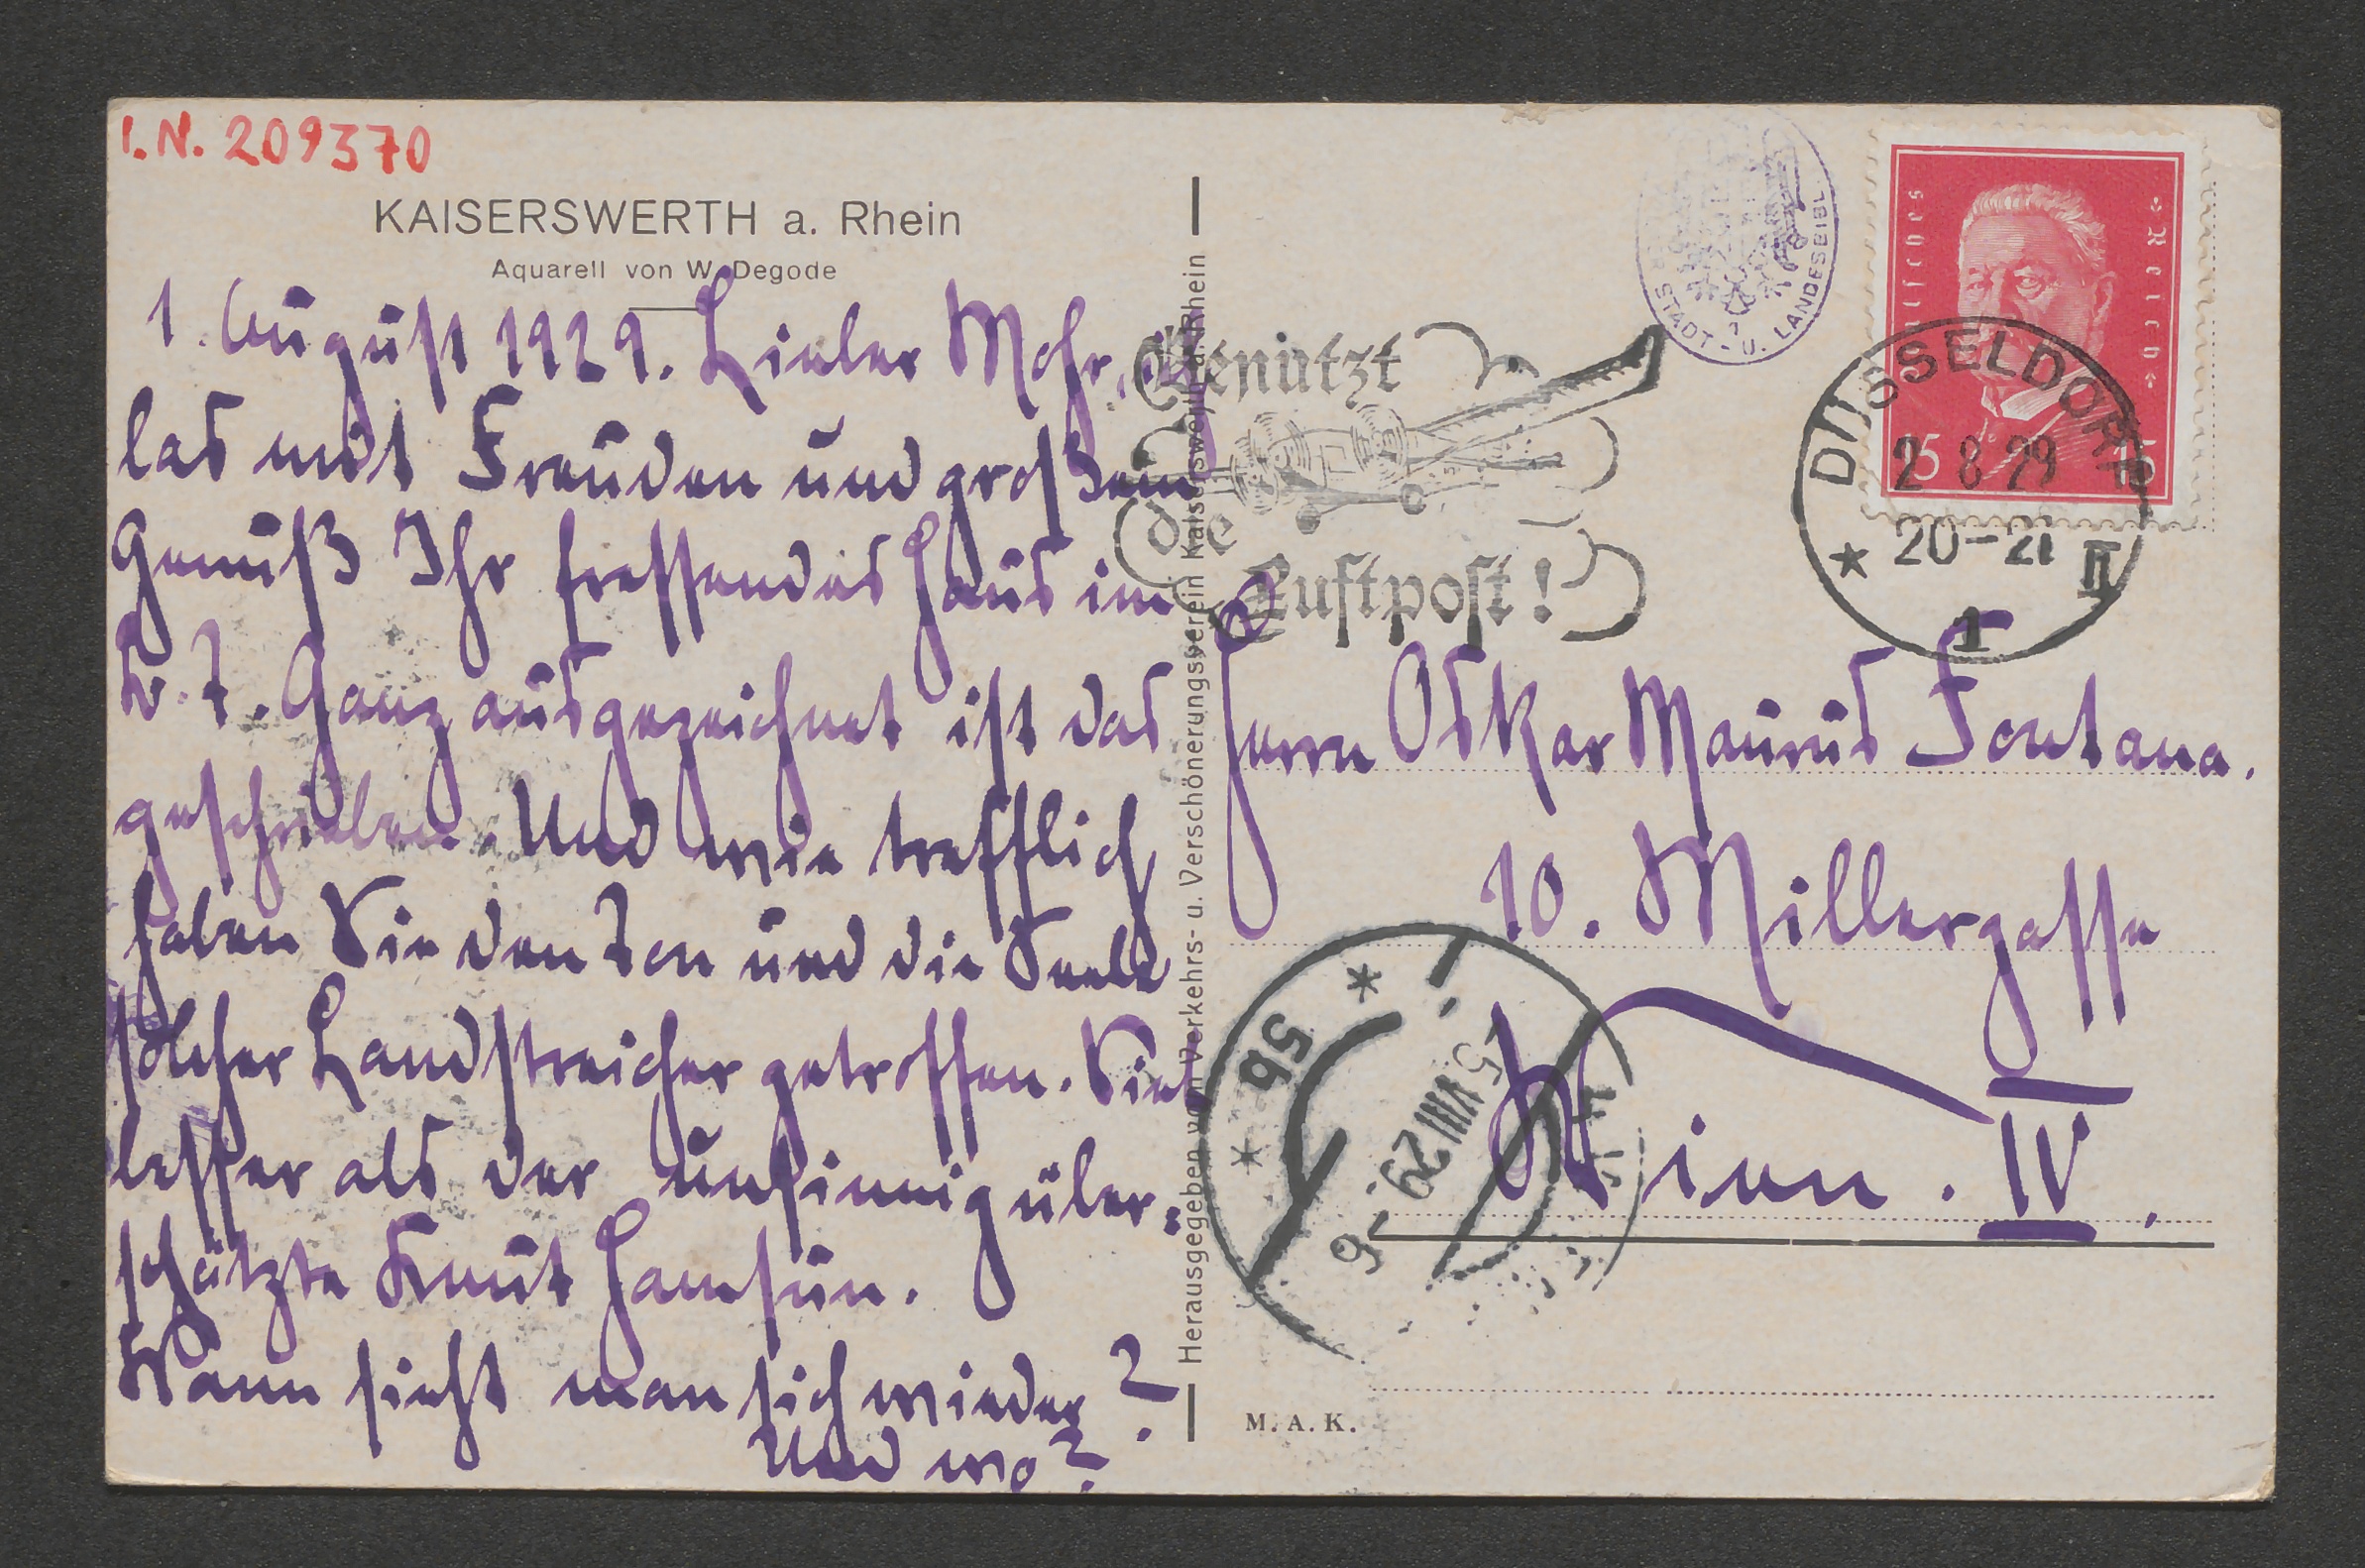 I.N. 209370
KAISERSWERTH a. Rhein
Aquarell von W. Degode
1. August 1929. Lieber Mohr, ich
las mit Freuden und großem
Genuß Ihr fressendes Haus im
B. T. Ganz ausgezeichnet ist das
geschrieben. Und wie trefflich
haben Sie den Ton und die Seele
solcher Landstreicher getroffen. Viel
besser als der unsinnig über-
schätzte Knut Hamsun.
Wann sieht man sich wieder?
Und wo?
Herausgegeben vom Verkehrs- u. Verschönerungsverein Kaiserswerth a. Rhein
STADT- U. LANDESBIBL.
Deutsches Reich
15 15
Benützt
die
Luftpost!
DÜSSELDORF
2 8 29
20-21 II
1
Herrn Oskar Maurus Fontana.
10. Millergasse
Wien. IV.
5b
5 VIII 29
M. A. K.